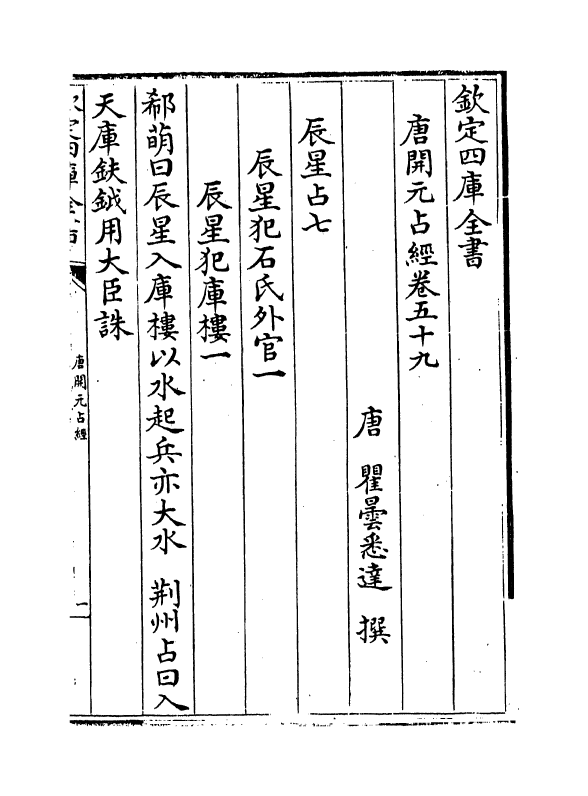 欽定四庫全書
唐開元占經卷五十九
唐 瞿曇悉達 撰
辰星占七
辰星犯石氏外官一
辰星犯庫樓一
郗萌曰辰星入庫樓以水起兵亦大水 荆州占曰入
天庫鈇鉞用大臣誅
欽定四庫全書
唐開元占經
二